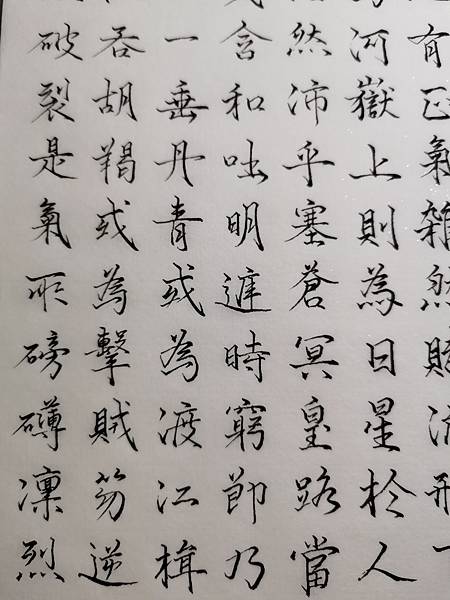 有正氣雜然賦流形
河嶽上則為日星於人
然沛乎塞蒼冥皇路當
含和吐明時窮節乃
一垂丹青或為渡江楫
吞胡羯或為擊賊笏逆
破裂是氣所磅礴凜烈